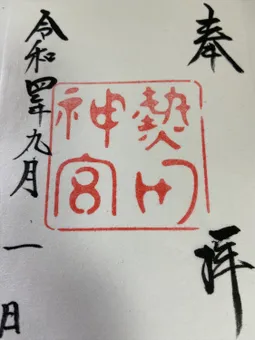 奉拝
熱田
神宮
令和四年九月一日